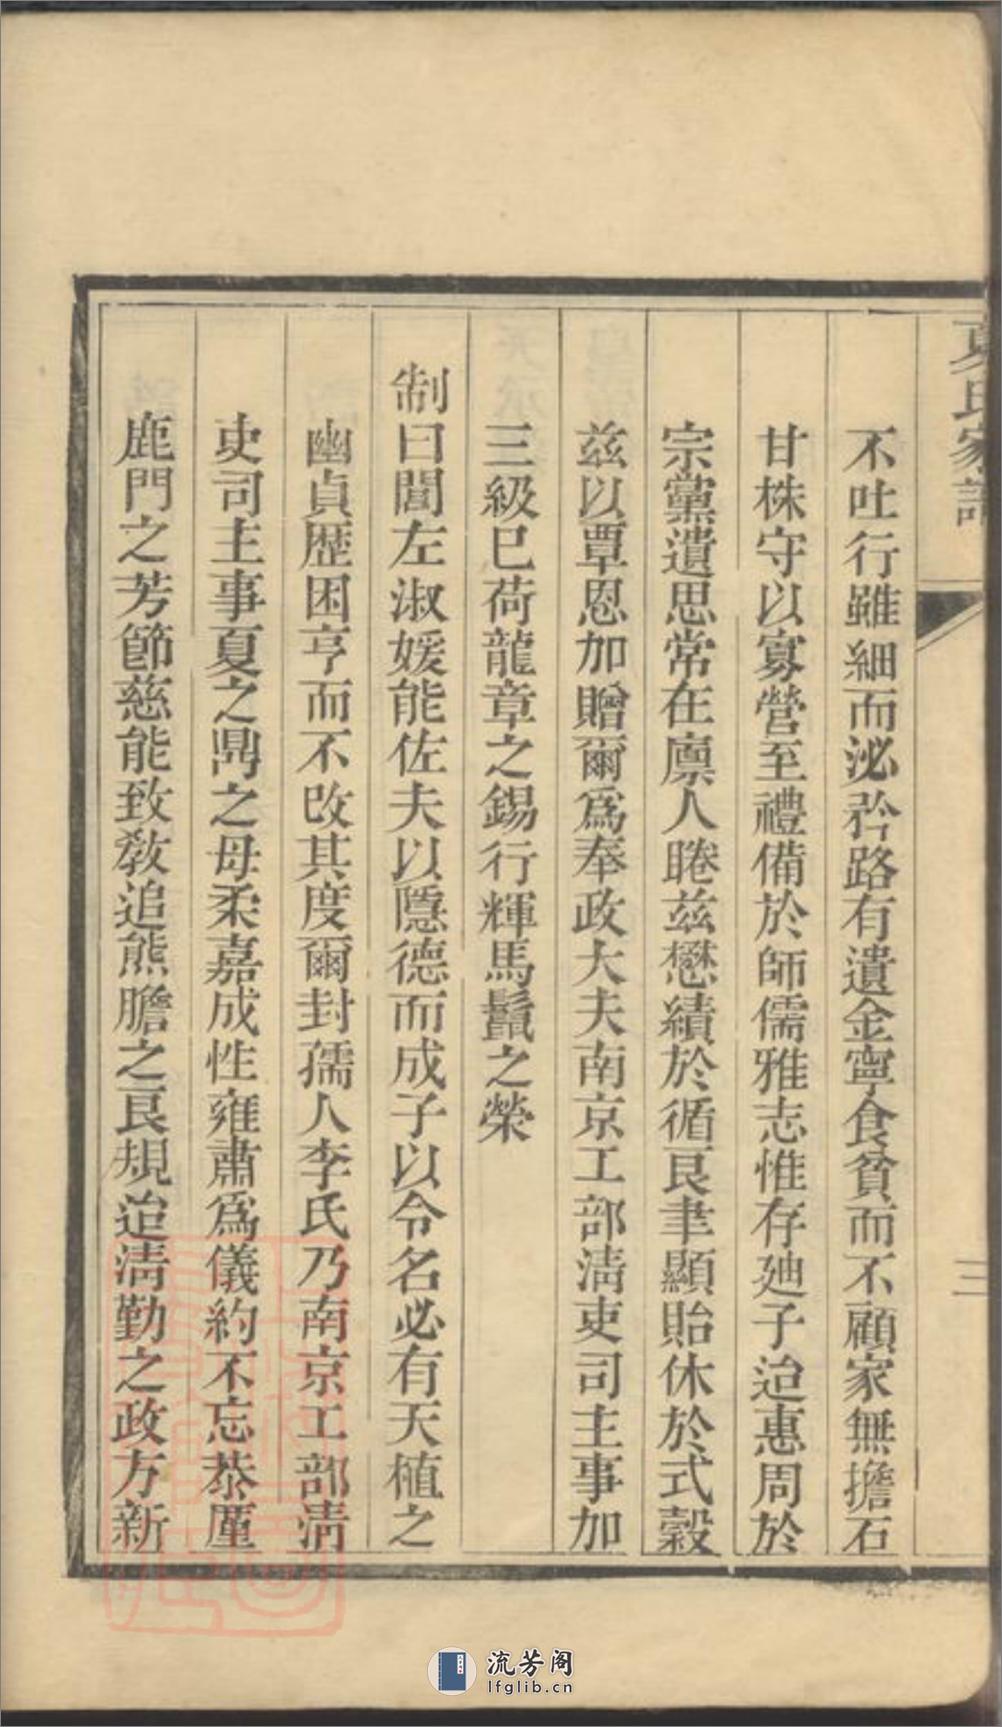 夏氏家譜
三
不吐行雖細而泌矜路有遺金寧食貧而不顧家無擔石
甘株守以寡營至禮備於師儒雅志惟存廸子迨惠周於
宗黨遺思常在廩人睠兹懋績於循良聿顯貽休於式穀
兹以覃恩加贈爾爲奉政大夫南京工部淸吏司主事加
三級已荷龍章之錫行輝馬鬛之榮
制曰閫左淑媛能佐夫以隱德而成子以令名必有天植之
幽貞歷困亨而不改其度爾封孺人李氏乃南京工部淸
吏司主事夏之鼎之母柔嘉成性雍肅爲儀約不忘恭厪
鹿門之芳節慈能致敎追熊膽之良規迨淸勤之政方新
流芳阁
lfglib.cn